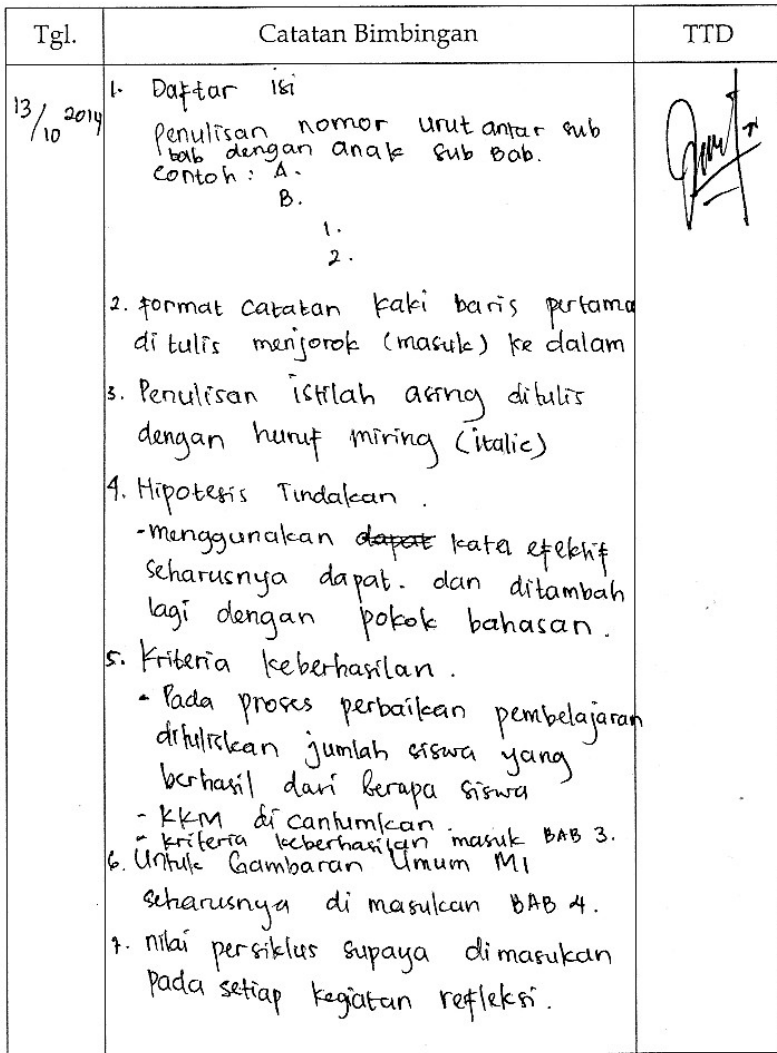 Tgl.
Catatan Bimbingan
TTD
13/10 2014
1. Daftar isi
Penulisan nomor urut antar sub
bab dengan anak sub Bab.
Contoh : A.
B.
1.
2.
2. Format catatan kaki baris pertama
di tulis menjorok (masuk) ke dalam
3. Penulisan istilah asing ditulis
dengan huruf miring (italic)
4. Hipotesis Tindakan .
- menggunakan dapat kata efektif
seharusnya dapat. dan ditambah
lagi dengan pokok bahasan.
5. Kriteria keberhasilan .
- Pada proses perbaikan pembelajaran
dituliskan jumlah siswa yang
berhasil dari berapa siswa
- KKM di cantumkan.
- kriteria keberhasilan masuk BAB 3.
6. Untuk Gambaran Umum MI
seharusnya di masukan BAB 4.
7. nilai persiklus supaya dimasukan
pada setiap kegiatan refleksi.